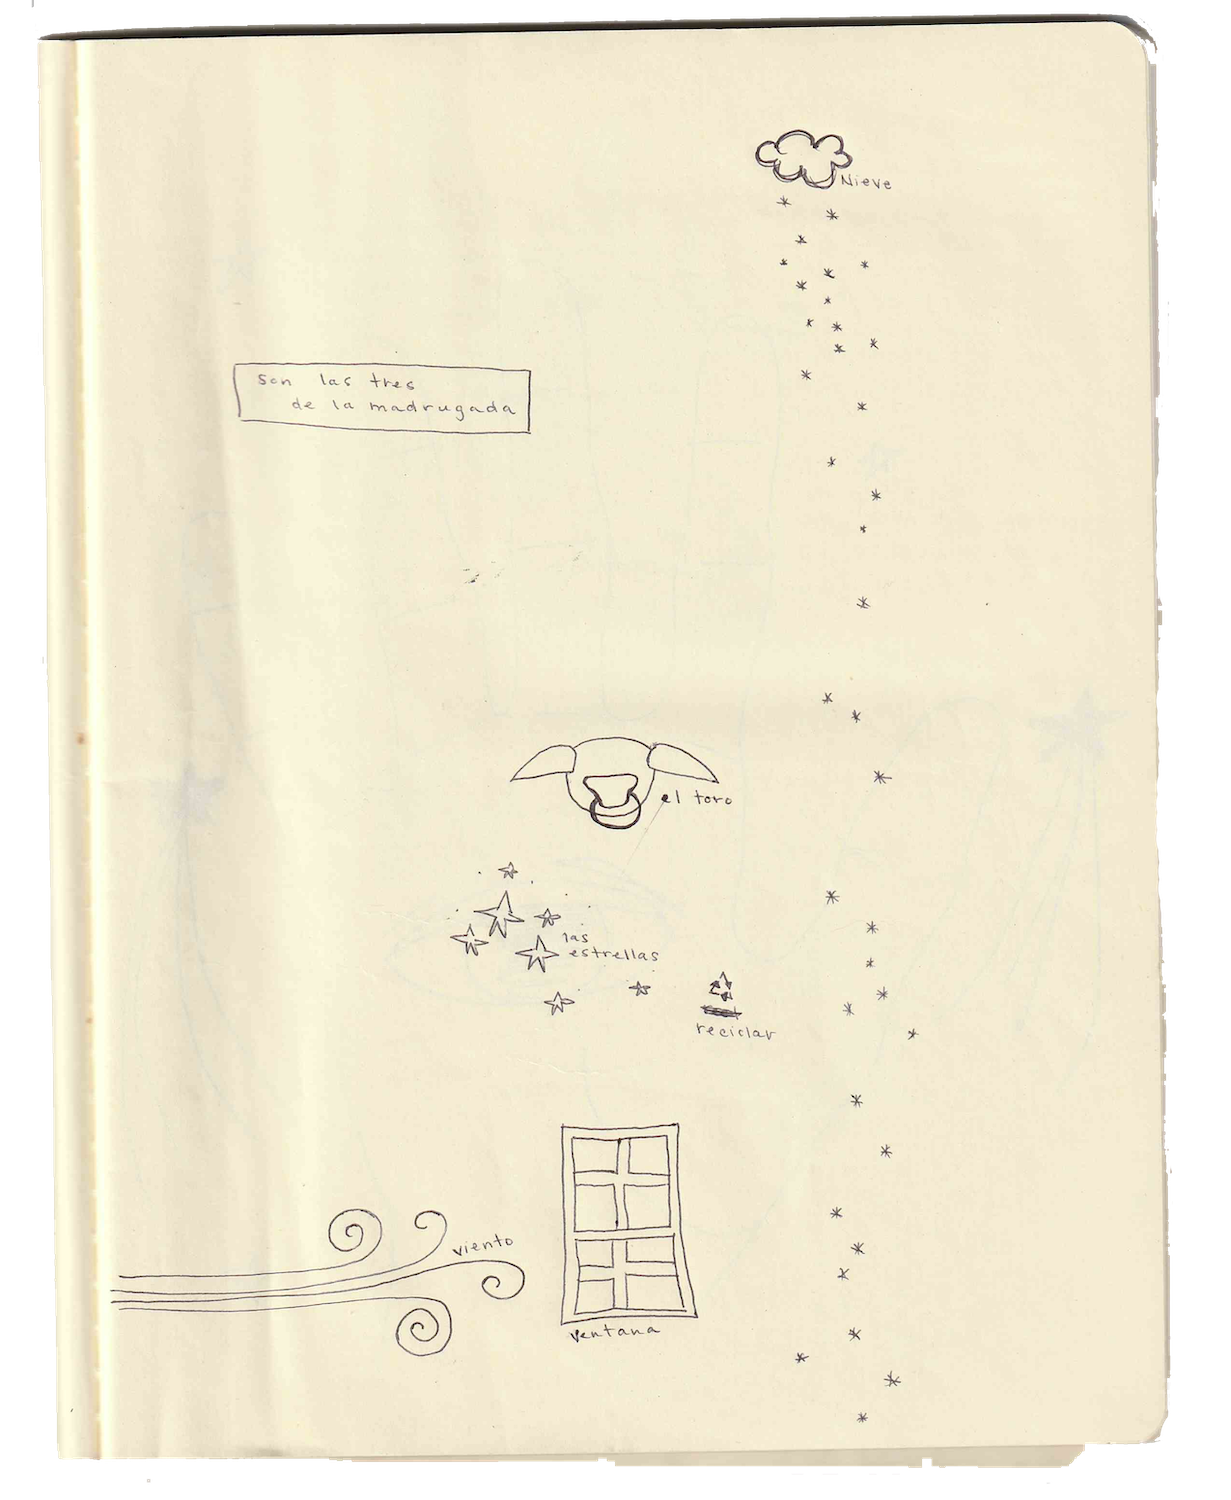 Nieve
son las tres
de la madrugada
el toro
las
estrellas
reciclar
viento
ventana